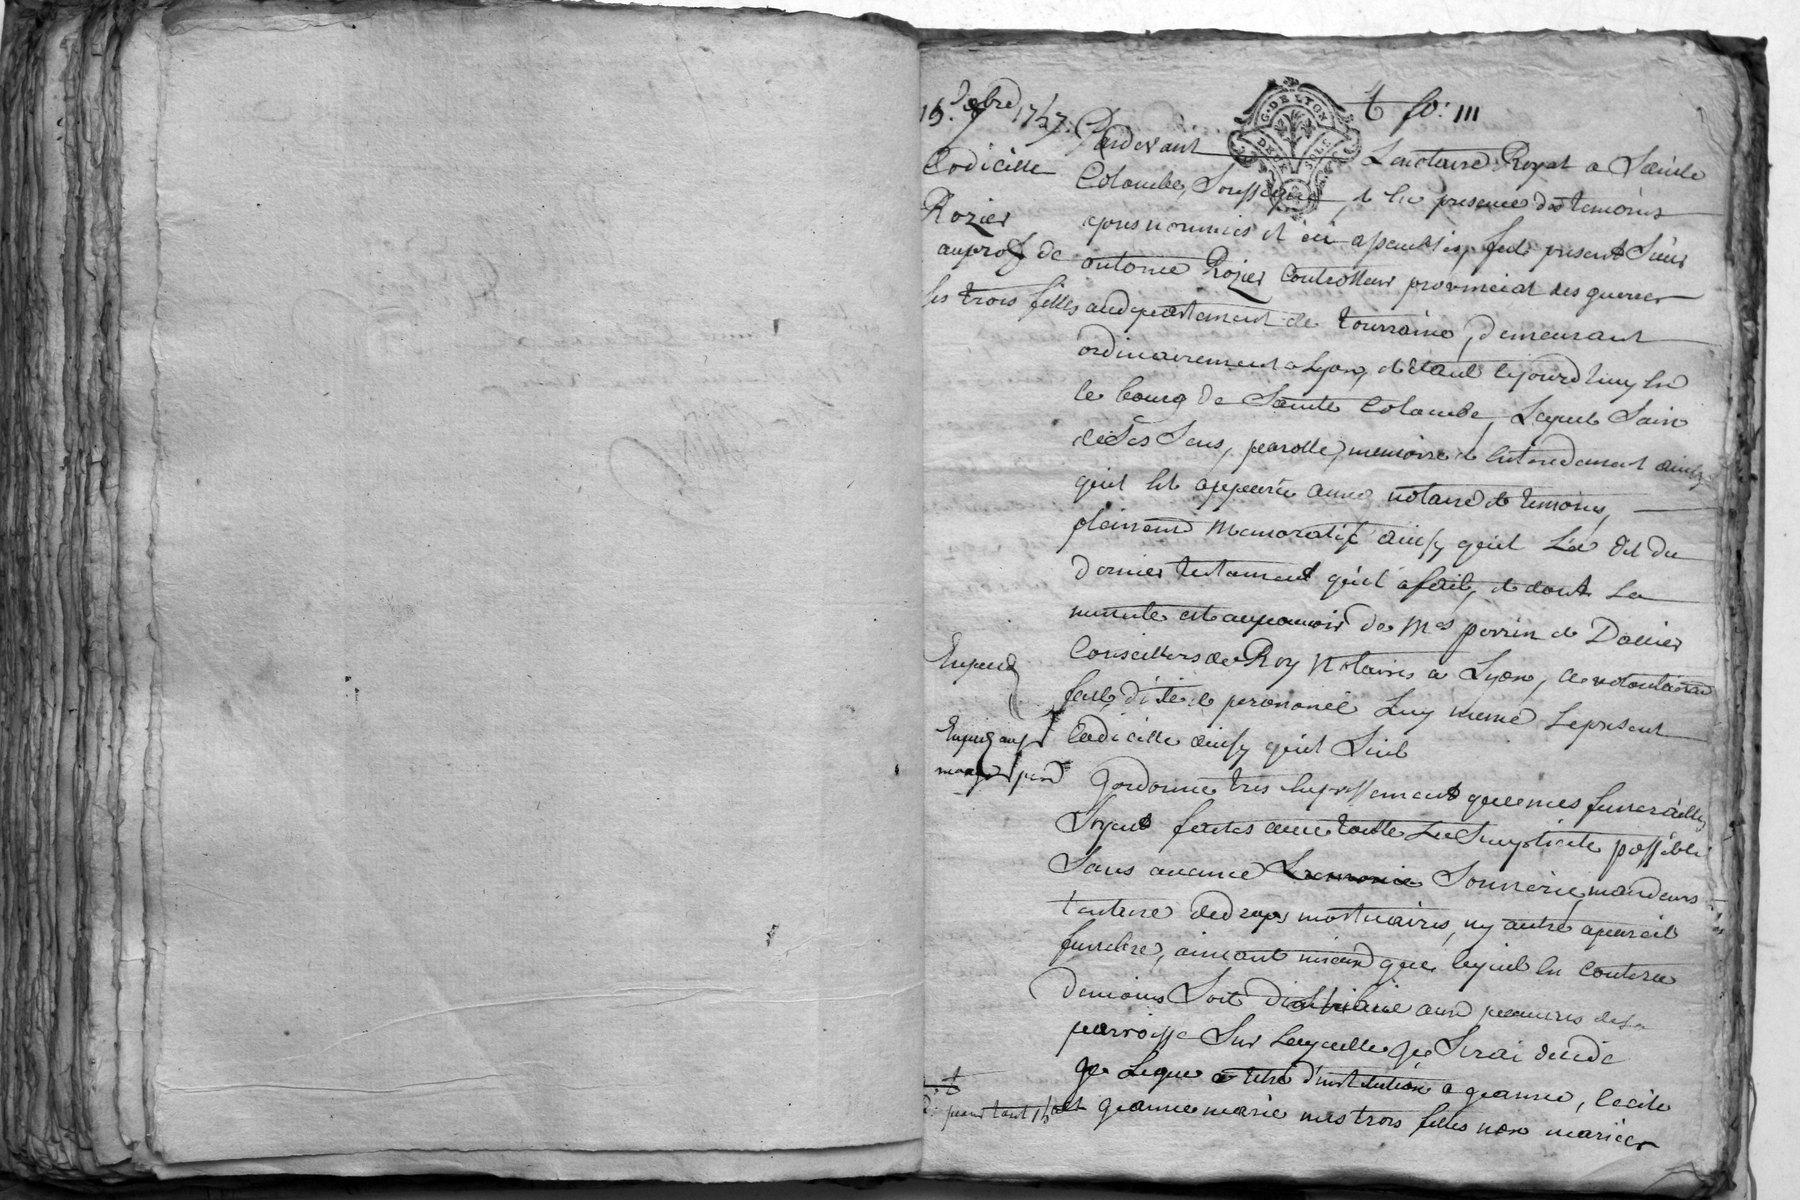 t fo: 111
G. DE LYON
DEUX SOLS
Codicille
Rozier
au profit de
ses trois filles
Pardevant Le notaire Royal a Sainte
Colombe, Soussigné, et En presence des temoins
apres nommés et cy assemblés, fut present Sieur
antoine Rozier Controlleur provincial des guerres
au departement de tourraine, demeurant
ordinairement a Lyon, et Etant cejourdhuy En
le bourg de Sainte Colombe, Lequel Sain
de Ses Sens, parolle, memoire et Entendement ainsy
quil Est apparu a nous notaire et temoins,
plainement Memoratif ainsy quil L'a dit du
dernier testament quil a fait, et dont La
minute est au pouvoir de Mes perrin et Dalier
Conseillers du Roy Notaires a Lyon, a volontairement
fait, dicté et prononcé Luy meme Le present
Codicille ainsy quil Suit
Expedié
Expedié
J'ordonne tres Expressement que mes funerailles
Soyent faites avec toutte La Simplicité possible
Sans aucune Sonnerie, mandeurs
tenture de draps mortuaires, ny autre apareil
funebre, aimant mieux que ce qui En coutera
de moins Soit distribué aux pauvres de la
parroisse Sur Laquelle je Serai decedé
Je Legue a titre d'institution a jeanne, Cecile
et jeanne marie mes trois filles non mariées